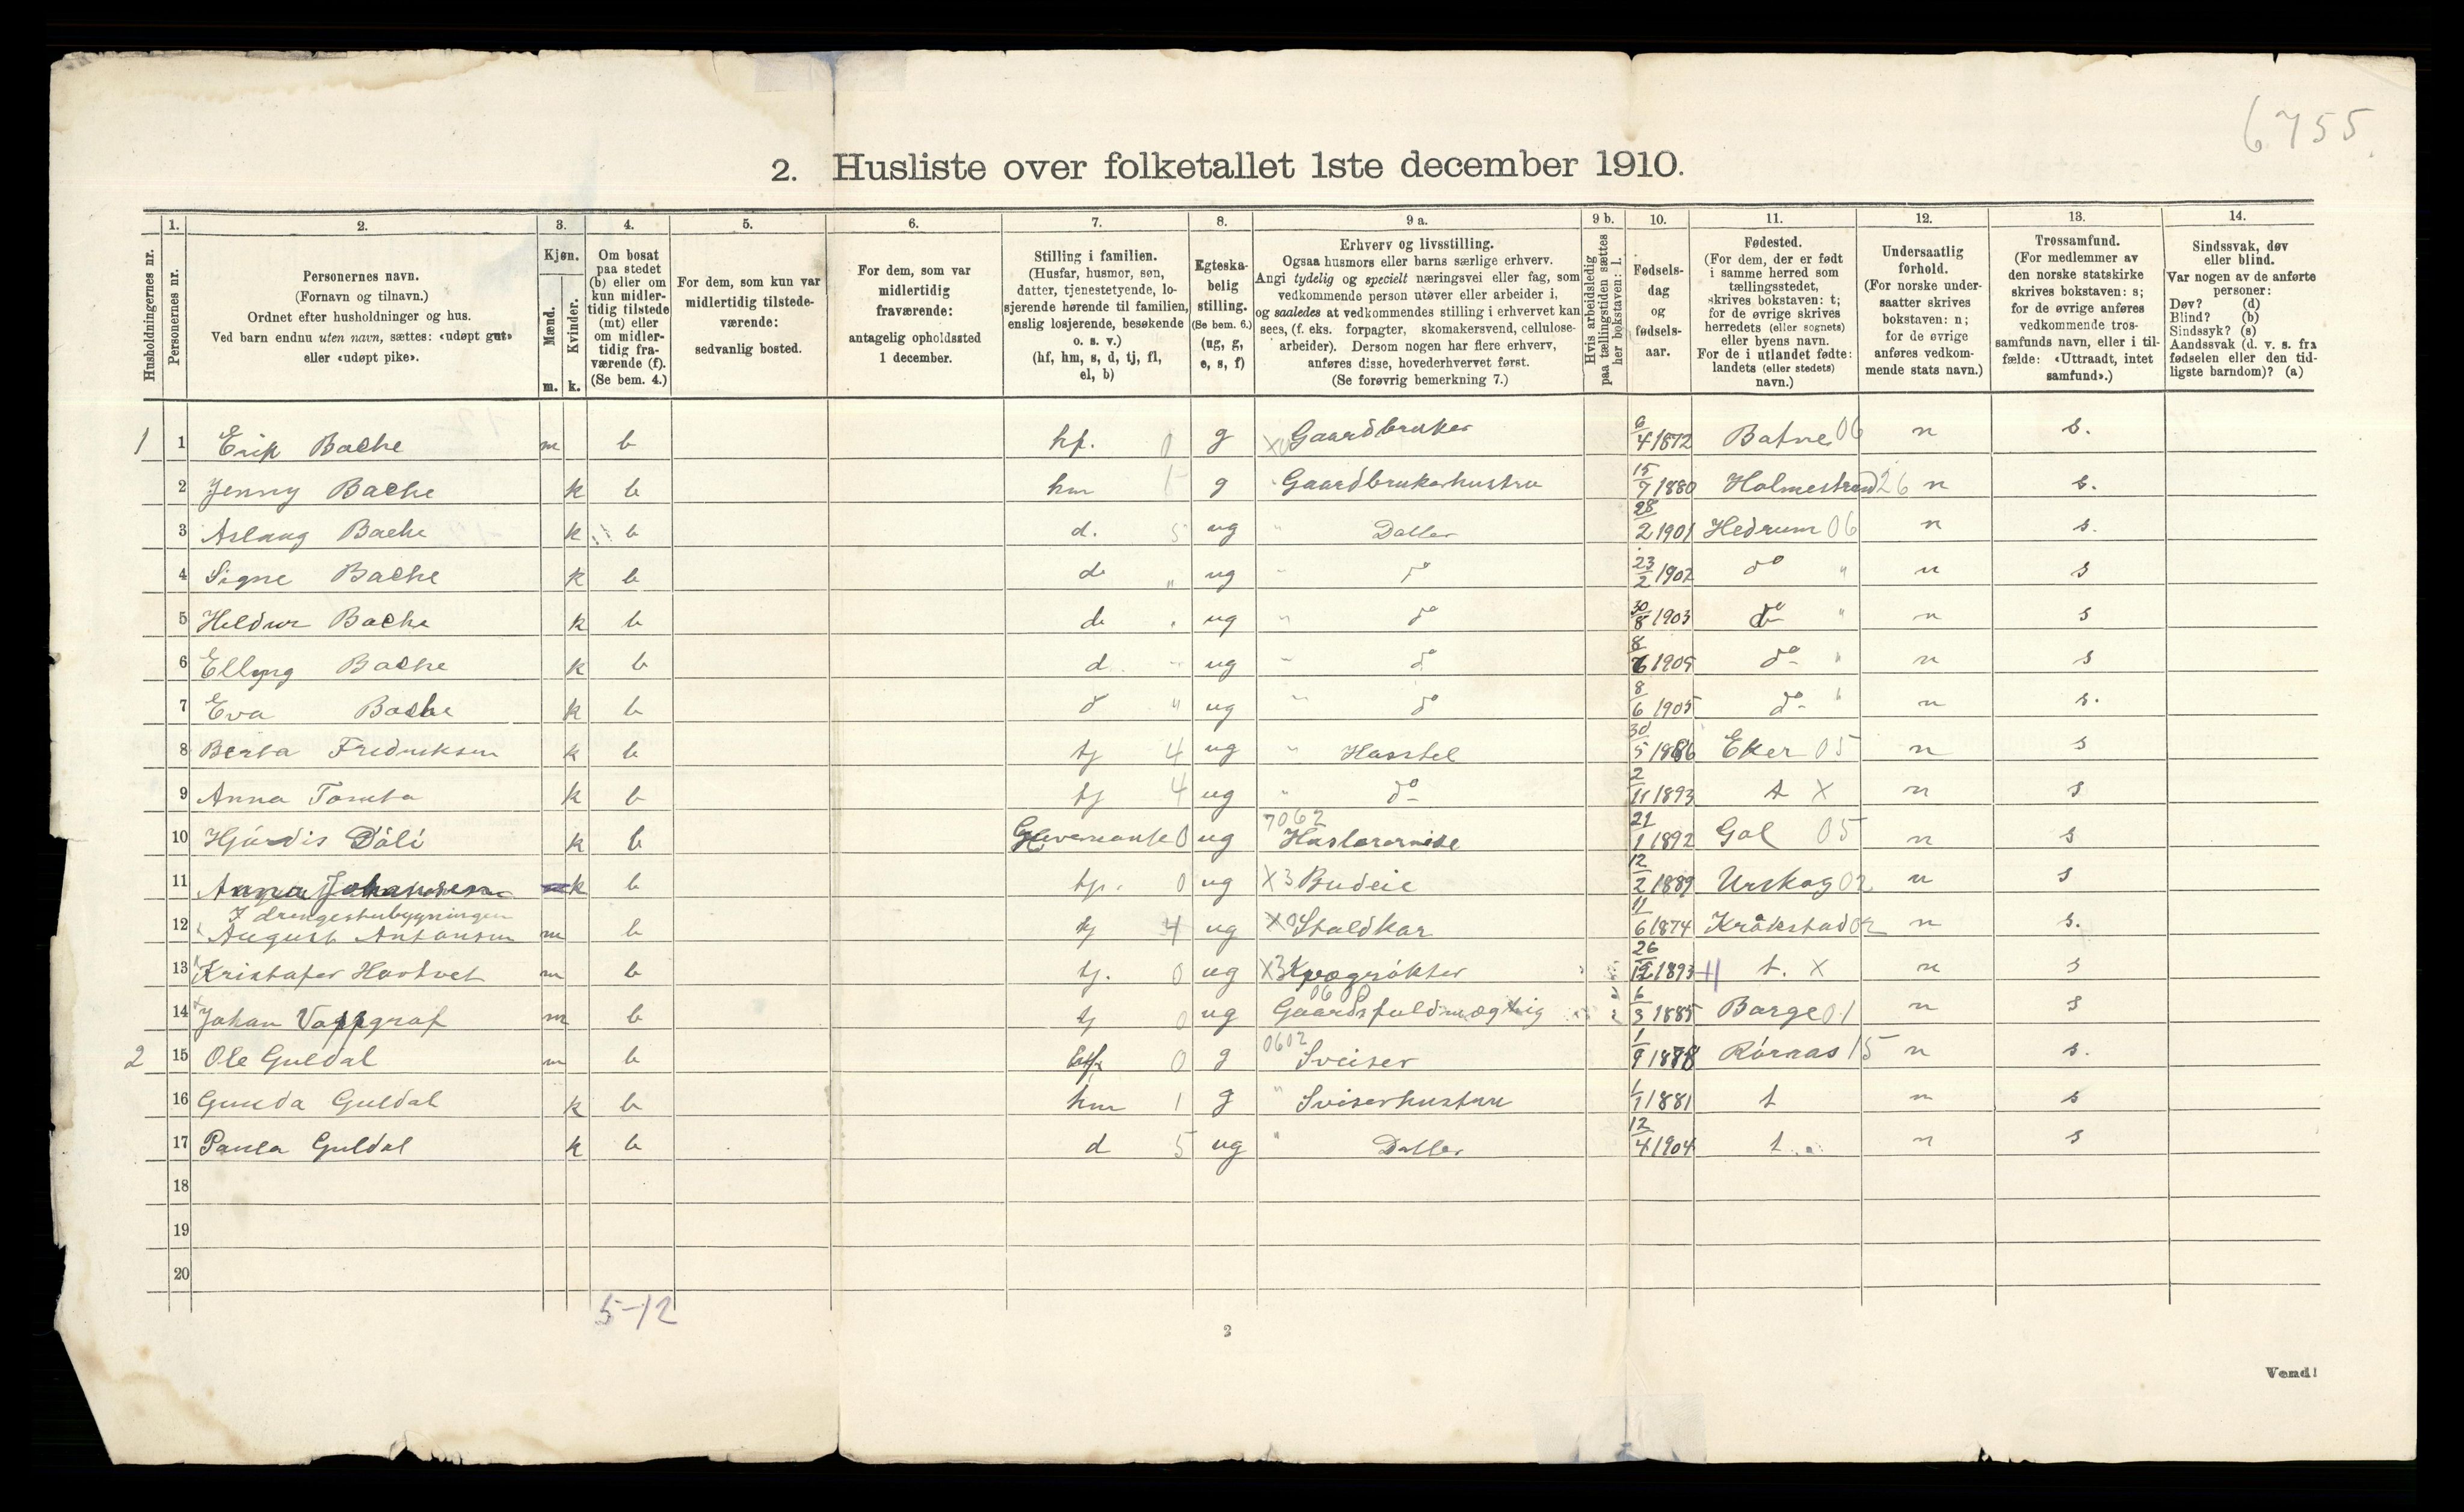 6755
2. Husliste over folketallet 1ste december 1910.
Husholdningernes nr.
1.
Personernes nr.
2.
Personernes navn.
(Fornavn og tilnavn.)
Ordnet efter husholdninger og hus.
Ved barn endnu uten navn, sættes: «udøpt gut»
eller «udøpt pike».
3.
Kjøn.
Mænd.
Kvinder.
m. k.
4.
Om bosat
paa stedet
(b) eller om
kun midler-
tidig tilstede
(mt) eller
om midler-
tidig fra-
værende (f).
(Se bem. 4.)
5.
For dem, som kun var
midlertidig tilstede-
værende:
sedvanlig bosted.
6.
For dem, som var
midlertidig
fraværende:
antagelig opholdssted
1 december.
7.
Stilling i familien.
(Husfar, husmor, søn,
datter, tjenestetyende, lo-
sjerende hørende til familien,
enslig losjerende, besøkende
o. s. v.)
(hf, hm, s, d, tj, fl,
el, b)
8.
Egteska-
belig
stilling.
(Se bem. 6.)
(ug, g,
e, s, f)
9 a.
Erhverv og livsstilling.
Ogsaa husmors eller barns særlige erhverv.
Angi tydelig og specielt næringsvei eller fag, som
vedkommende person utøver eller arbeider i,
og saaledes at vedkommendes stilling i erhvervet kan
sees, (f. eks. forpagter, skomakersvend, cellulose-
arbeider). Dersom nogen har flere erhverv,
anføres disse, hovederhvervet først.
(Se forøvrig bemerkning 7.)
9 b.
Hvis arbeidsledig
paa tællingstiden sættes
her bokstaven: l.
10.
Fødsels-
dag
og
fødsels-
aar.
11.
Fødested.
(For dem, der er født
i samme herred som
tællingsstedet,
skrives bokstaven: t;
for de øvrige skrives
herredets (eller sognets)
eller byens navn.
For de i utlandet fødte:
landets (eller stedets)
navn.)
12.
Undersaatlig
forhold.
(For norske under-
saatter skrives
bokstaven: n;
for de øvrige
anføres vedkom-
mende stats navn.)
13.
Trossamfund.
(For medlemmer av
den norske statskirke
skrives bokstaven: s;
for de øvrige anføres
vedkommende tros-
samfunds navn, eller i til-
fælde: «Uttraadt, intet
samfund».)
14.
Sindssvak, døv
eller blind.
Var nogen av de anførte
personer:
Døv? (d)
Blind? (b)
Sindssyk? (s)
Aandssvak (d. v. s. fra
fødselen eller den tid-
ligste barndom)? (a)
1 1 Erik Bache m b hf. 0 g Gaardbruker 6/4 1872 Botne 06 n s.
2 Jenny Bache k b hm 1 g Gaardbrukerhustru 15/7 1880 Holmestrand 26 n s.
3 Aslaug Bache k b d. 5 ug " Datter 28/2 1901 Hedrum 06 n s.
4 Signe Bache k b d " ug " do 23/2 1902 do " n s
5 Heldur Bache k b d " ug " do 30/8 1903 do " n s
6 Ellyng Bache k b d " ug " do 8/6 1905 do " n s
7 Eva Bache k b d " ug " do 8/6 1905 do " n s.
8 Berta Fredriksen k b tj 4 ug " Husstel 30/5 1886 Eker 05 n s
9 Anna Tomta k b tj 4 ug " do 2/11 1893 t X n s
10 Hjördis Döli k b Guvernante 0 ug 7062 21/1 1892 Gol 05 n s
11 Anna Johansen k b tj. 0 ug X3 Budeie 12/2 1889 Urskog 02 n s
I drengestubygningen
12 August Antonsen m b tj 4 ug X0 Staldkar 11/6 1874 Kråkstad 02 n s.
13 Kristofer Hartvet m b tj. 0 ug X3 Kvægrökter 26/12 1893 t. X n s
14 Johan m b tj 0 ug Gaardsfuldmægtig 6/3 1885 Borge 01 n s
2 15 Ole Guldal m b hf 0 g 0602 Sveiser 1/9 1878 Röraas 15 n s.
16 Gunda Guldal k b hm 1 g " Sveiserhustru 1/1 1881 t n s
17 Paula Guldal k b d 5 ug " Datter 12/4 1904 t n s
18
19
20
5-12
2
Vend!